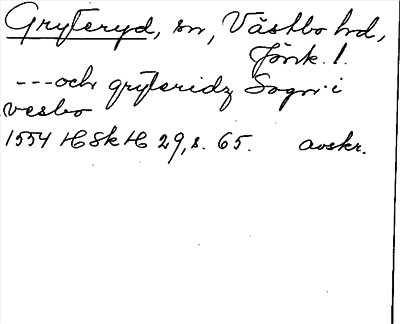 Gryteryd, sn, Västbo hd,
Jönk. l.
---och gryteridz Sogn i
vesbo
1554 HSkH 29, s. 65. avskr.